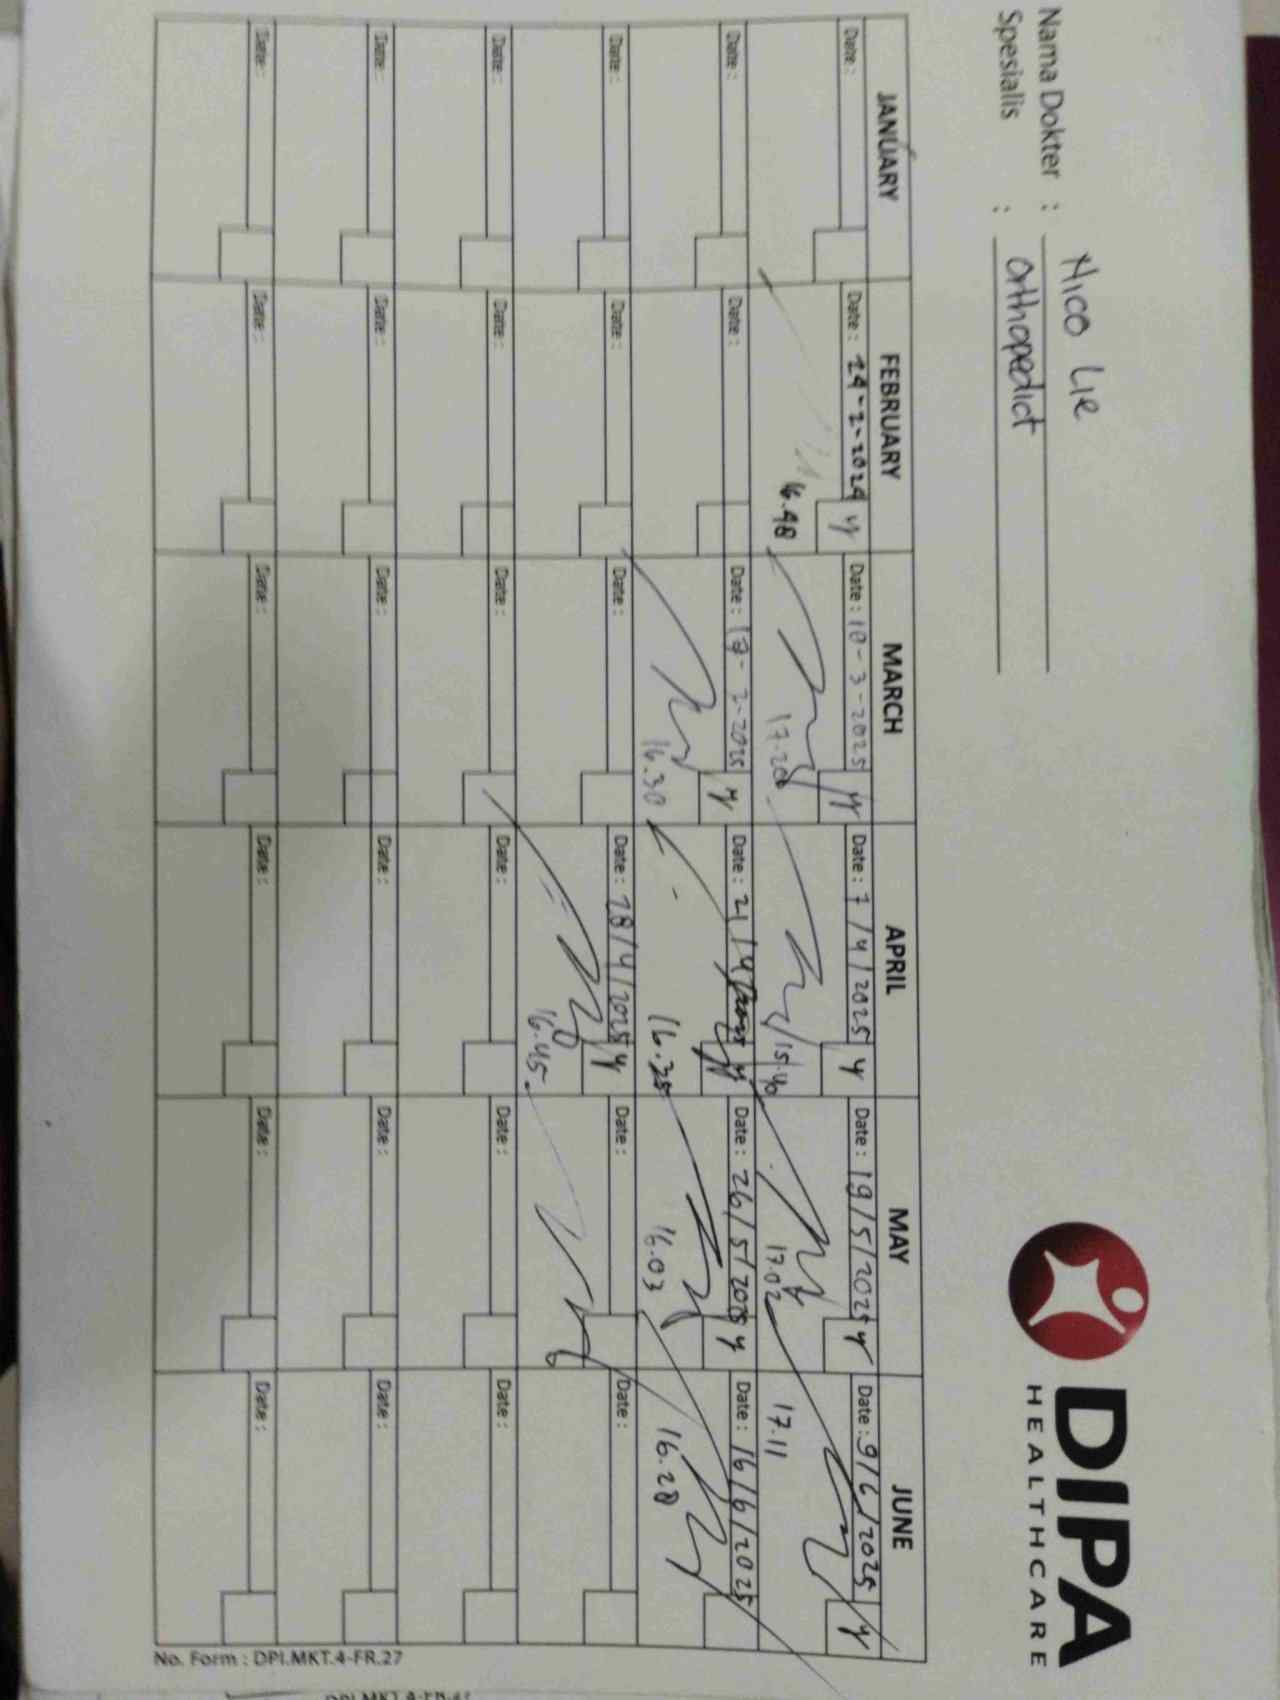 Nama Dokter : Nico Lie
Spesialis : Orthopedict
DIPA
HEALTHCARE
JANUARY FEBRUARY MARCH APRIL MAY JUNE
Date : Date : 24-2-2024 y Date : 10-3-2025 y Date : 7/4/2025 y Date : 19/5/2025 y Date : 9/6/2025 y
16.48 17.20 15.40 17.02 17.11
Date : Date : Date : 17-2-2025 y Date : 21/4/2025 y Date : 26/5/2025 y Date : 16/6/2025
16.30 16.03 16.28
Date : Date : Date : Date : 28/4/2025 y Date : Date :
16.45
Date : Date : Date : Date : Date : Date :
Date : Date : Date : Date : Date : Date :
Date : Date : Date : Date : Date : Date :
No. Form : DPI.MKT.4-FR.27